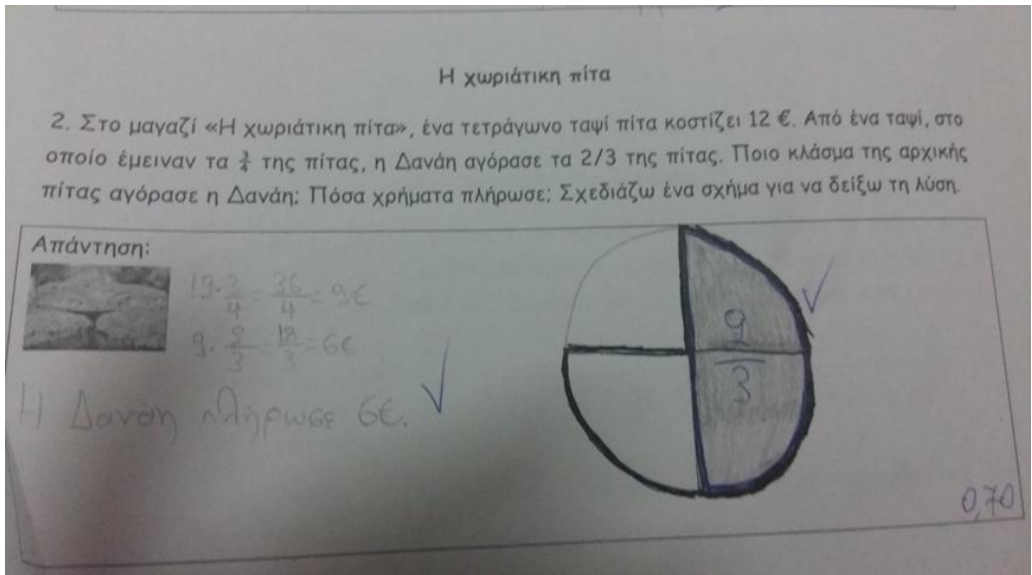 Η χωριάτικη πίτα
2. Στο μαγαζί «Η χωριάτικη πίτα», ένα τετράγωνο ταψί πίτα κοστίζει 12 €. Από ένα ταψί, στο
οποίο έμειναν τα ¾ της πίτας, η Δανάη αγόρασε τα 2/3 της πίτας. Ποιο κλάσμα της αρχικής
πίτας αγόρασε η Δανάη; Πόσα χρήματα πλήρωσε; Σχεδιάζω ένα σχήμα για να δείξω τη λύση.
Απάντηση:
12·3/4=36/4=9€
9·2/3=18/3=6€
Η Δανάη πλήρωσε 6€.
2/3
0,70